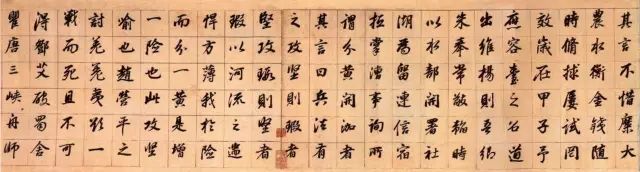 其言不惜糜大
農水衡金錢随
時脩捄屡試罔
效歲在甲子予
應容臺之召道
出維揚則吾鄉
朱奉常敬韜時
以水部開署社
湖為留連信宿
抵掌漕事詢所
謂分黄開泇者
其言曰兵法有
之攻堅則瑕者
堅攻瑕則堅者
瑕以河流之遄
悍方薄我於險
而分一黄是增
一險也此攻堅
喻也趙營平之
討羌羌夷一
戰而死且不可
得鄧艾破蜀舍
瞿唐三峽舟師